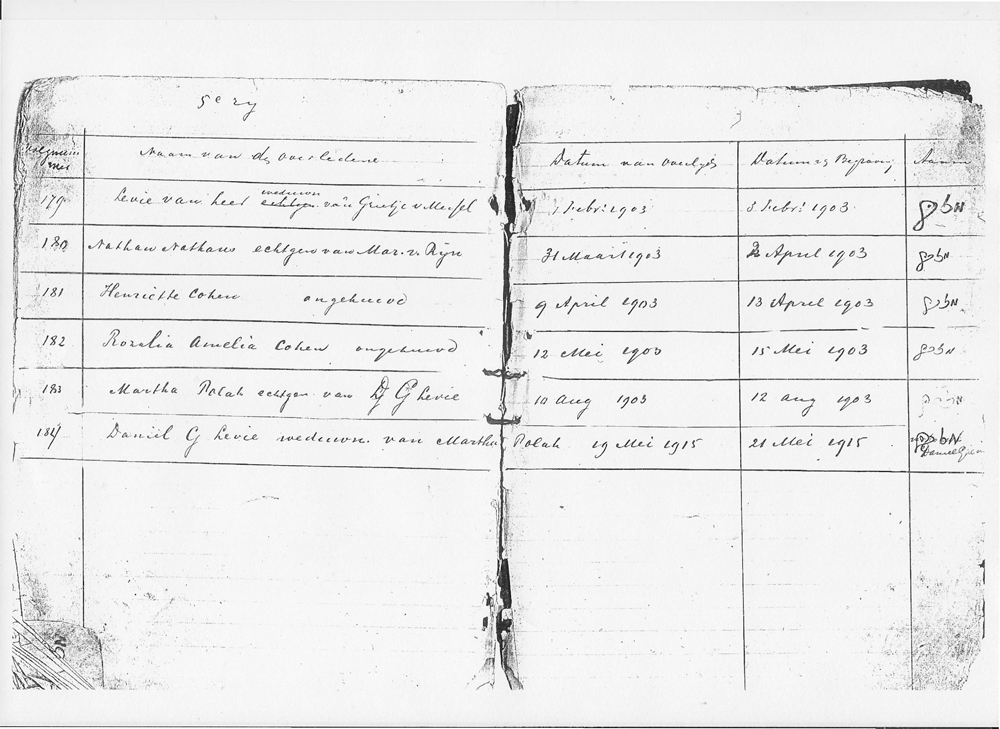 5e ry
Volgnummer Naam van de overledene Datum van overlyd Datum Begraving
179 Levie van Leer weduwn echtgen. van Grietje v Meysel 1 Febri 1903 3 Febri 1903 אלכף
180 Nathan Nathans echtgen van Mar. v. Ryn 31 Maart 1903 2 April 1903 אלכף
181 Henriette Cohen ongehuwd 9 April 1903 13 April 1903 אלכף
182 Rozalia Amelia Cohen ongehuwd 12 Mei 1903 15 Mei 1903 אלכף
183 Martha Polak echtgen. van D G Levie 10 Aug 1903 12 aug 1903
184 Daniel G Levie weduwn. van Martha Polak 19 Mei 1915 21 Mei 1915 אלכף